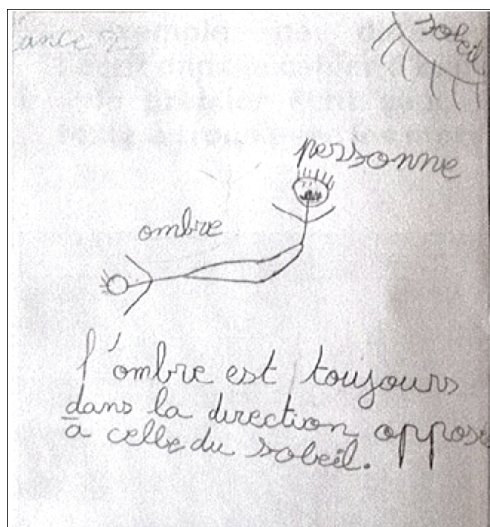 soleil
personne
ombre
l'ombre est toujours
dans la direction oppose
à celle du soleil.